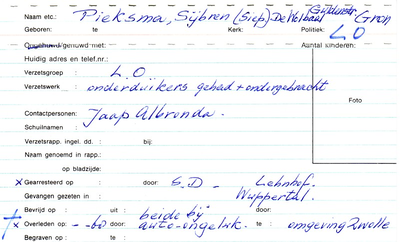 Naam etc.: Pieksma, Sijbren (Siep) De Wolbaai Gron
Geboren: te Kerk: Politiek:
L O
Ongehuwd/gehuwd met: Aantal kinderen:
Huidig adres en telef.nr.:
Verzetsgroep : L.O
Verzetswerk : onderduikers gehad + ondergebracht
Foto
Contactpersonen: Jaap Albronda.
Schuilnamen :
Verzetsrapp. ingel. dd. : bij:
Naam genoemd in rapp.:
op bladzijde:
x Gearresteerd op : door: S.D - Lehnhof.
Gevangen gezeten in : Wuppertal.
Bevrijd op : uit : beide bij door:
x Overleden op: door: auto-ongeluk. te : omgeving Zwolle
Begraven op : te :